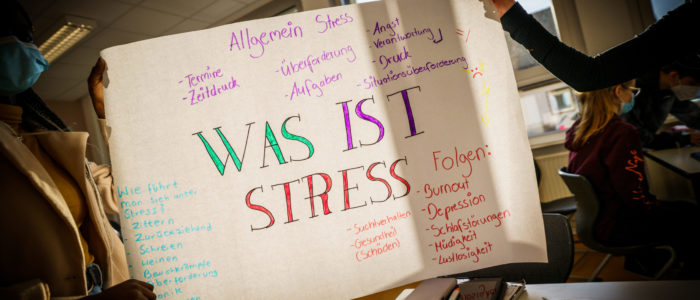 Allgemein Stress
- Termine
- Zeitdruck
- Überforderung
- Aufgaben
- Angst
- Verantwortung
- Druck
- Situationsüberforderung
WAS IST
STRESS
Wie führt
man sich unter
Stress?
Zittern
Zurückziehend
Schreien
weinen
Bauchkrämpfe
Überforderung
Panik
- Suchtverhalten
- Gesundheit
(Schaden)
Folgen:
- Burnout
- Depression
- Schlafstörungen
- Müdigkeit
- Lustlosigkeit